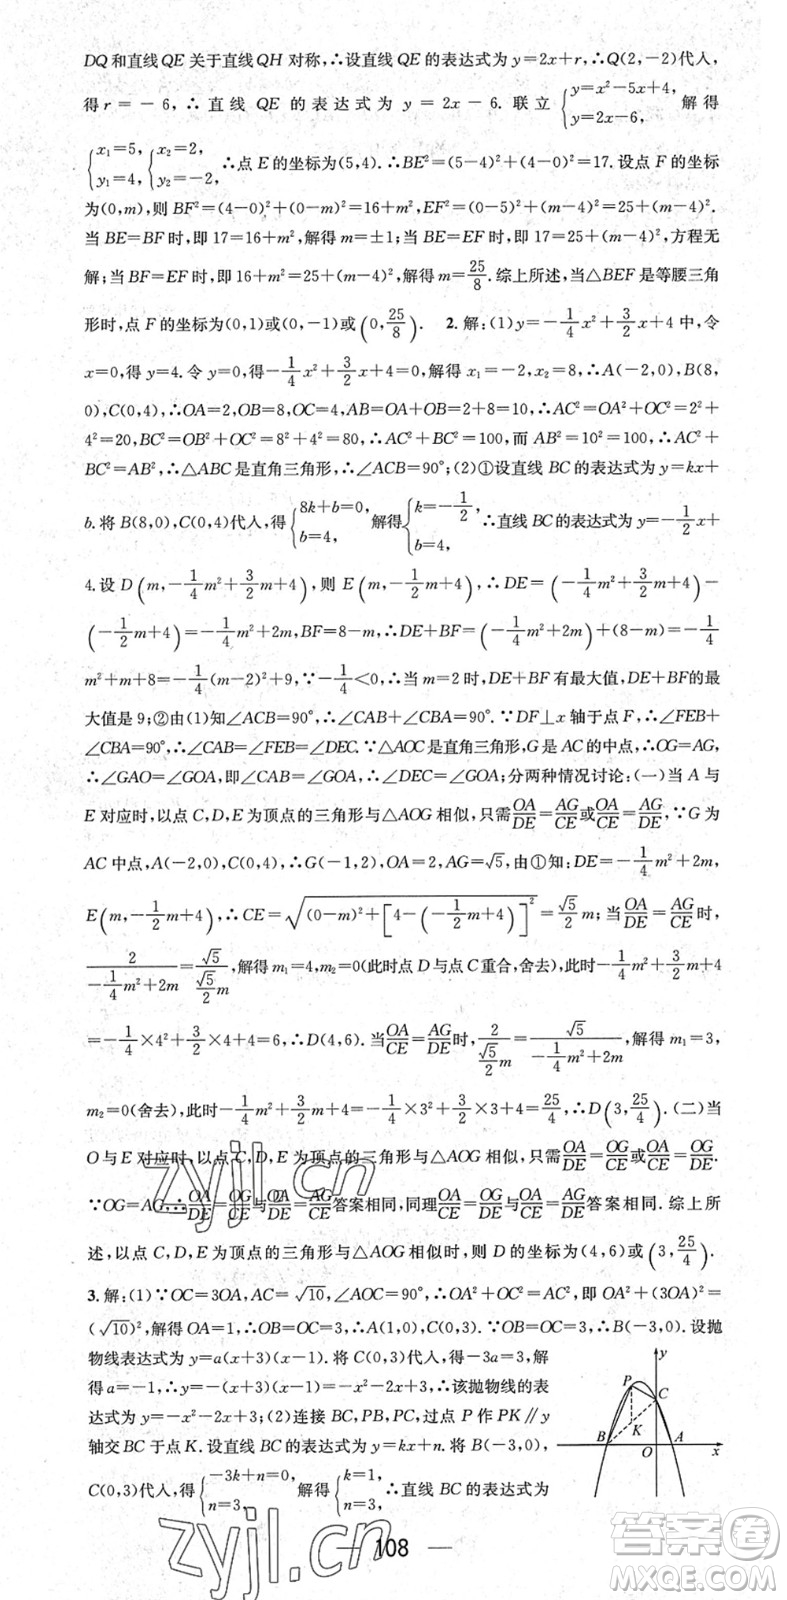 DQ和直线QE关于直线QH对称,∴设直线QE的表达式为y=2x+r,∴Q(2,-2)代入,
得r=-6,∴直线QE的表达式为y=2x-6.联立{y=x²-5x+4, y=2x-6, 解得
{x₁=5, y₁=4, {x₂=2, y₂=-2, ∴点E的坐标为(5,4).∴BE²=(5-4)²+(4-0)²=17.设点F的坐标
为(0,m),则BF²=(4-0)²+(0-m)²=16+m²,EF²=(0-5)²+(m-4)²=25+(m-4)².
当BE=BF时,即17=16+m²,解得m=±1;当BE=EF时,即17=25+(m-4)²,方程无
解;当BF=EF时,即16+m²=25+(m-4)²,解得m=25/8.综上所述,当△BEF是等腰三角
形时,点F的坐标为(0,1)或(0,-1)或(0,25/8). 2.解:(1)y=-1/4x²+3/2x+4中,令
x=0,得y=4.令y=0,得-1/4x²+3/2x+4=0,解得x₁=-2,x₂=8,∴A(-2,0),B(8,
0),C(0,4),∴OA=2,OB=8,OC=4,AB=OA+OB=2+8=10,∴AC²=OA²+OC²=2²+
4²=20,BC²=OB²+OC²=8²+4²=80,∴AC²+BC²=100,而AB²=10²=100,∴AC²+
BC²=AB²,∴△ABC是直角三角形,∴∠ACB=90°;(2)①设直线BC的表达式为y=kx+
b.将B(8,0),C(0,4)代入,得{8k+b=0, b=4, 解得{k=-1/2, b=4, ∴直线BC的表达式为y=-1/2x+
4.设D(m,-1/4m²+3/2m+4),则E(m,-1/2m+4),∴DE=(-1/4m²+3/2m+4)-
(-1/2m+4)=-1/4m²+2m,BF=8-m,∴DE+BF=(-1/4m²+2m)+(8-m)=-1/4
m²+m+8=-1/4(m-2)²+9,∵-1/4<0,∴当m=2时,DE+BF有最大值,DE+BF的最
大值是9;②由(1)知∠ACB=90°,∴∠CAB+∠CBA=90°.∵DF⊥x轴于点F,∴∠FEB+
∠CBA=90°,∴∠CAB=∠FEB=∠DEC.∵△AOC是直角三角形,G是AC的中点,∴OG=AG,
∴∠GAO=∠GOA,即∠CAB=∠GOA,∴∠DEC=∠GOA;分两种情况讨论:(一)当A与
E对应时,以点C,D,E为顶点的三角形与△AOG相似,只需OA/DE=AG/CE或OA/CE=AG/DE,∵G为
AC中点,A(-2,0),C(0,4),∴G(-1,2),OA=2,AG=√5,由①知:DE=-1/4m²+2m,
E(m,-1/2m+4),∴CE=√((0-m)²+[4-(-1/2m+4)]²)=√5/2m;当OA/DE=AG/CE时,
2/(-1/4m²+2m)=√5/(√5/2m),解得m₁=4,m₂=0(此时点D与点C重合,舍去),此时-1/4m²+3/2m+4
=-1/4×4²+3/2×4+4=6,∴D(4,6).当OA/CE=AG/DE时,2/(√5/2m)=√5/(-1/4m²+2m),解得m₁=3,
m₂=0(舍去),此时-1/4m²+3/2m+4=-1/4×3²+3/2×3+4=25/4,∴D(3,25/4).(二)当
O与E对应时,以点C,D,E为顶点的三角形与△AOG相似,只需OA/DE=OG/CE或OA/CE=OG/DE.
∵OG=AG,∴OA/DE=OG/CE与OA/DE=AG/CE答案相同,同理OA/CE=OG/DE与OA/CE=AG/DE答案相同.综上所
述,以点C,D,E为顶点的三角形与△AOG相似时,则D的坐标为(4,6)或(3,25/4).
3.解:(1)∵OC=3OA,AC=√10,∠AOC=90°,∴OA²+OC²=AC²,即OA²+(3OA)²=
(√10)²,解得OA=1,∴OB=OC=3,∴A(1,0),C(0,3).∵OB=OC=3,∴B(-3,0).设抛
物线表达式为y=a(x+3)(x-1).将C(0,3)代入,得-3a=3,解
得a=-1,∴y=-(x+3)(x-1)=-x²-2x+3,∴该抛物线的表
达式为y=-x²-2x+3;(2)连接BC,PB,PC,过点P作PK∥y
轴交BC于点K.设直线BC的表达式为y=kx+n.将B(-3,0),
C(0,3)代入,得{-3k+n=0, n=3, 解得{k=1, n=3, ∴直线BC的表达式为
y
P
C
K
B
O
A
x
108
zyjl.cn
zyjl.cn
答案圈
MXQE.COM